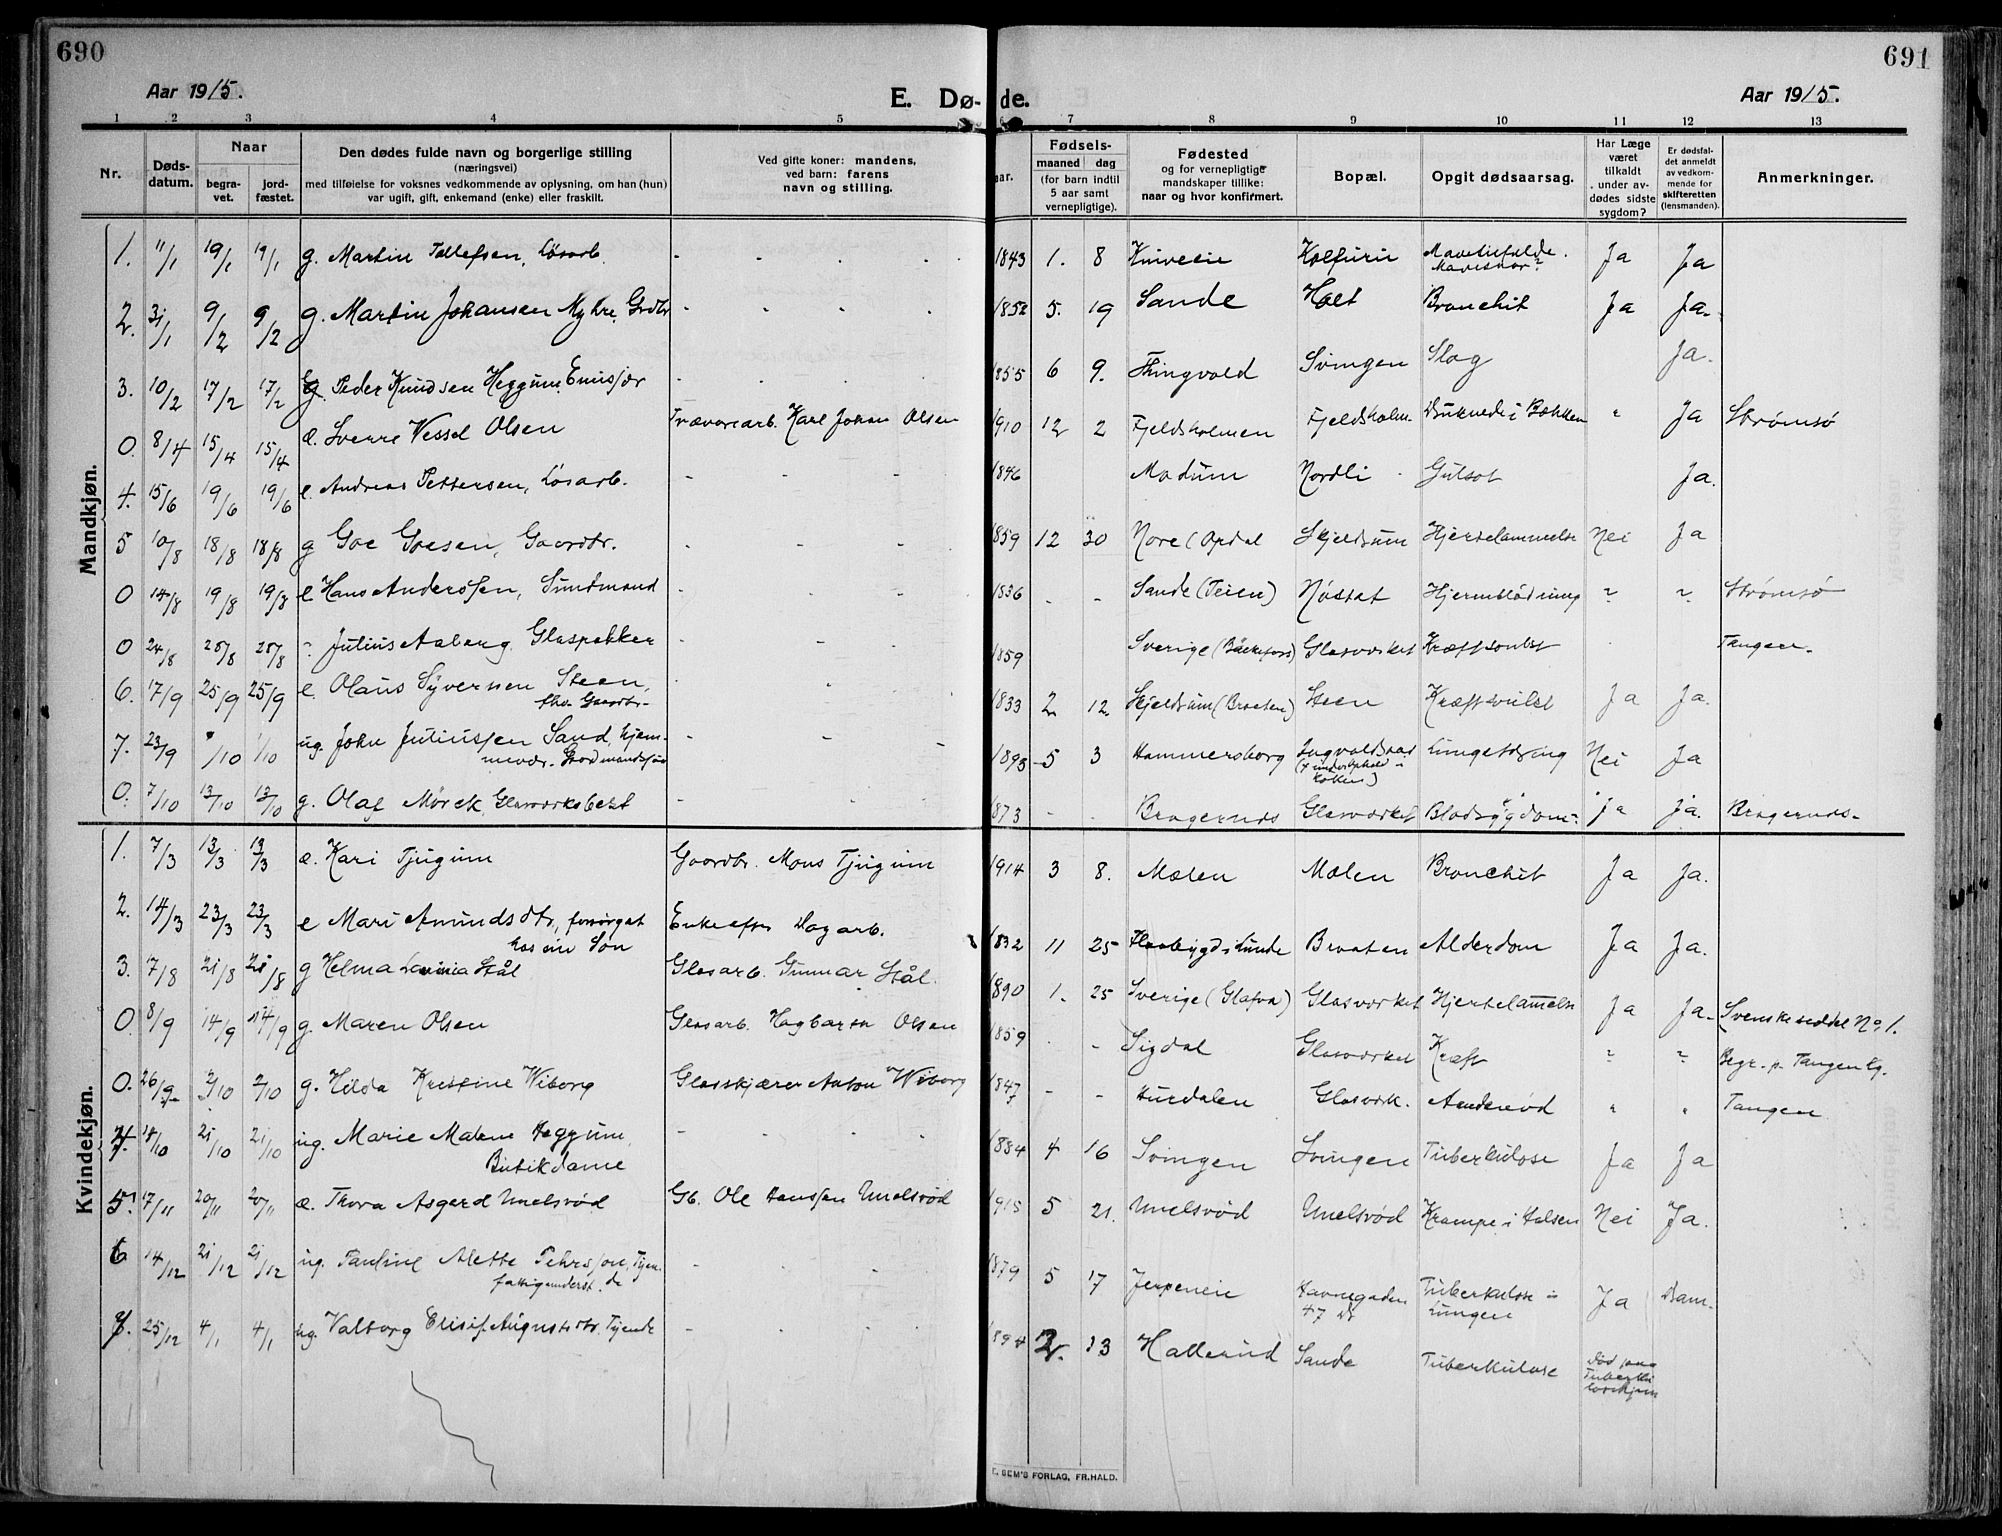 690
691
Aar 1915.
E. Dø-
de.
Aar 1915.
1 2 3 4 5 7 8 9 10 11 12 13
Nr.
Døds-
datum.
Naar
begra-
vet.
jord-
fæstet.
Den dødes fulde navn og borgerlige stilling
(næringsvei)
med tilføielse for voksnes vedkommende av oplysning, om han (hun)
var ugift, gift, enkemand (enke) eller fraskilt.
Ved gifte koner: mandens,
ved barn: farens
navn og stilling.
Fødsels-
maaned dag
(for barn indtil
5 aar samt
vernepligtige).
Fødested
og for vernepligtige
mandskaper tillike:
naar og hvor konfirmert.
Bopæl.
Opgit dødsaarsag.
Har Læge
været
tilkaldt
under av-
dødes sidste
sygdom?
Er dødsfal-
det anmeldt
av vedkom-
mende for
skifteretten
(lensmanden).
Anmerkninger.
Mandkjøn.
1. 11/1 19/1 19/1 g. Martin Tollefsen, Løsarb. 1843 1. 8 Kniveeie Kolfurii Ja Ja
2. 31/1 9/2 9/2 g. Martin Johansen Myhre, Grdbr 1852 5. 19 Sande Holt Bronchit Ja Ja.
3. 10/2 17/2 17/2 g. Peder Knudsen Heggum 1855 6 9. Thingvold Svingen Slag Ja.
0. 8/4 15/4 15/4 æ. Sverre Vessel Olsen Trævarearb. Karl Johan Olsen 1910 12 2 Fjeldsholmen Fjeldsholm. Druknede i Bækken " Ja Strømsø
4. 15/6 19/6 19/6 e. Andreas Pettersen, Løsarb. 1846 Modum Nordli Gulsot Ja.
5 10/8 18/8 18/8 g Goe Goesen, Gaardbr. 1859 12 30 Nore (Opdal Skjeldrum Hjertelammelse Nei Ja
0 14/8 19/8 19/8 e Hans Anderssen, Sundmand 1836 - - Sande (Teien) Nøstet Hjerneblødning " " Strømsø
0 24/8 28/8 28/8 Julius Aaberg, Glaspakker 1859 Sverige (Bäckefors) Glasværket Kræftsvulst Tangen.
6. 17/9 25/9 25/9 e. Olaus Syvernsen Steen,
fhv. Gaardbr. 1833 2 12. Skjeldrum (Braaten) Steen Kræftsvulst Ja Ja.
7. 23/9 1/10 1/10 ug. John Juliussen Sand, hjem-
mevær. Gaardmandssøn 1893 5 3 Hammersborg Lungetæring Nei Ja
0. 7/10 13/10 13/10 g. Olaf Mørck, Glasværksbest 1873 - - Bragernes Glasværket Blodsygdom. ja ja. Bragernes.
Kvindekjøn.
1. 7/3 13/3 13/3 æ. Kari Tjugum Gaardbr. Mons Tjugum 1914 3 8. Mælen Mælen Bronchit Ja Ja.
2. 14/3 23/3 23/3 e Mari Amundsdtr., forsørget
hos sin Søn Enke efter Dagarb. 1832 11 25 Flaabygd i Lunde Braaten Alderdom Ja Ja.
3. 17/8 21/8 21/8 g Helma Lavinia Stål Glasarb. Gunnar Stål. 1890 1. 25 Sverige (Glafva) Glasværket Hjertelammelse Ja Ja. Svenskeseddel No 1.
0. 8/9 14/9 14/9 g. Maren Olsen Glasarb. Hagbarth Olsen 1859 - Sigdal Glasværket Kræft " " Begr. p. Tangen Kg.
0. 26/9 2/10 2/10 g. Hilda Kristine Wiborg Glasskjærer Anton Wiborg 1847 - - Hurdalen Glasværk. Aandenød " " Tangen
4. 14/10 21/10 21/10 ug. Marie Malene Heggum,
Butikdame 1884 4 16 Svingen Svingen Tuberkulose Ja Ja
5. 17/11 20/11 20/11 æ. Thora Asgerd Unelsrød Gb. Ole Hanssen Unelsrød 1915 5 21. Unelsrød Unelsrød Krampe i Halsen Nei Ja.
6 14/12 21/12 21/12 ug. Pauline Alette Pehrsson, Tjen.
fattigunderst. 1879 5 17 Jerpeneie Havnegaden
47 Dr Tuberkulose i
Lungen Ja Dram.
7. 25/12 4/1 4/1 ug. Valborg Elisif Augustsdtr. Tjende 1894 2. 13 Hallerud Sande Tuberkulose Død paa
Tuberku
losehjem
E. SEM'S FORLAG, FR.HALD.